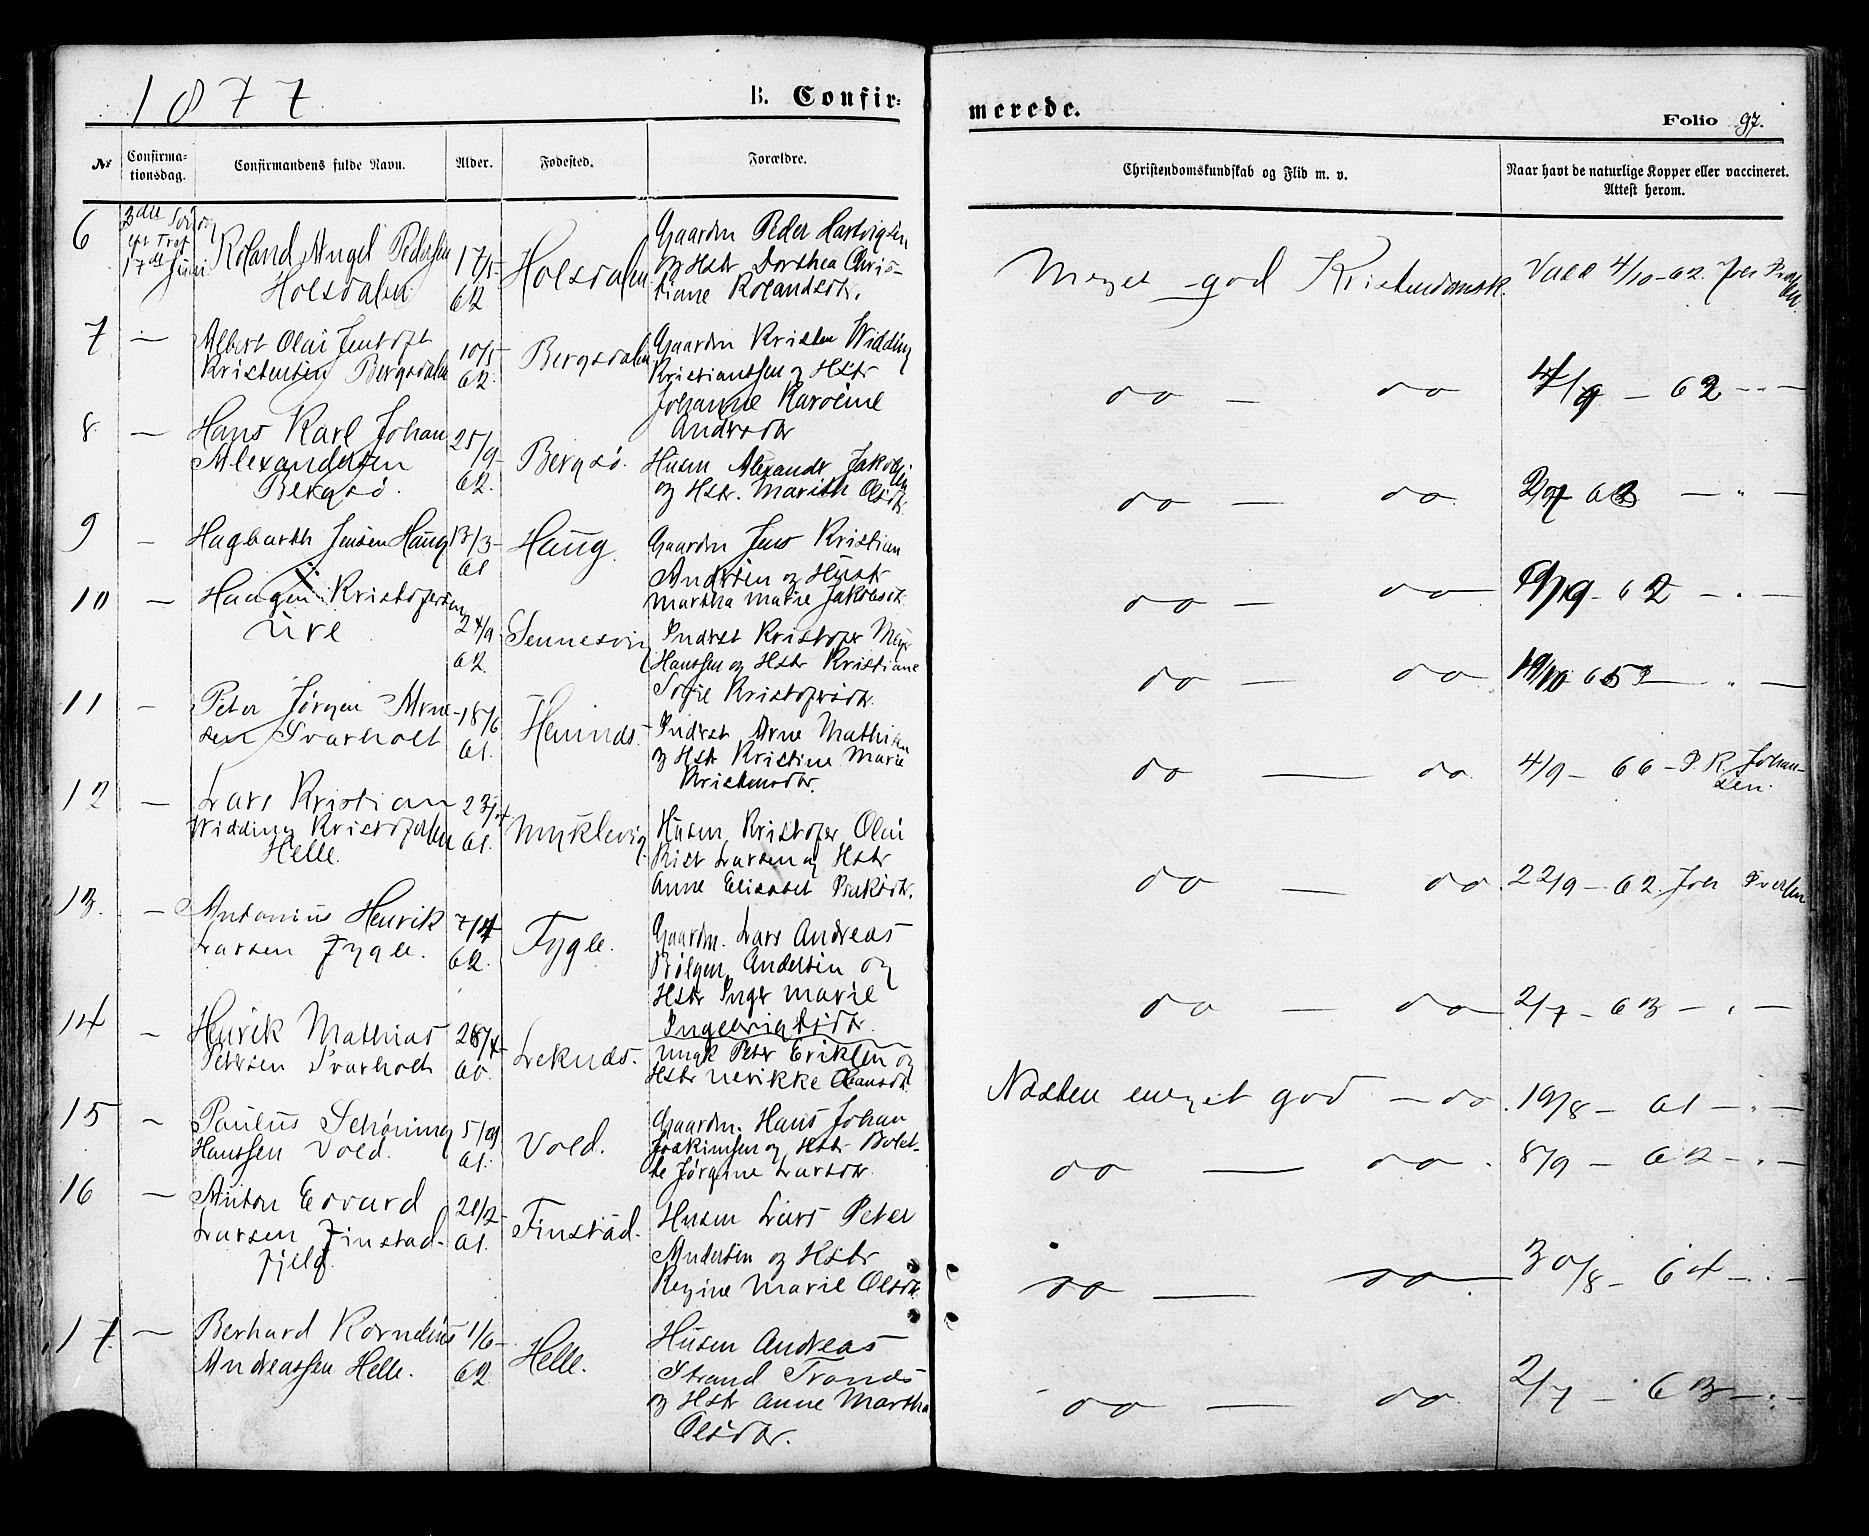 1877
B. Confir=
merede.
Folio 97.
№
Confirma=
tionsdag.
Confirmandens fulde Navn.
Alder.
Fødested.
Forældre.
Christendomskundskab og Flid m. v.
Naar havt de naturlige Kopper eller vaccineret.
Attest herom.
6
3die
eft Tref
17de Juni
Roland Angel Pedersen
Holsdalen
17/5
62
Holsdalen
Gaardm Peder Hartvigsen
og Hstr Dorthea Chris-
tiane Rolandsdtr.
Meget god Kristendomsk.
Vacc 4/10-62. Joh
7 —
Albert Olai Jentoft
Kristensen Bergsdalen
10/5
62.
Bergsdalen
Gaardm Kristen Widding
Kristianssen og Hstr
Johanne Karoline
Andrsdtr
do — do
/9 — 62 - " -
8. —
Hans Karl Johan
Alexandersen
Bergsø.
25/9
62.
Bergsø.
Husm Alexandr Jakobsen
og Hstr. Marith Olsdtr.
do — do
— " —
9 -
Hagbarth Jensen Haug
13/3-
61
Haug.
Gaardm Jens Kristian
Andersen og Hustr
Martha Marie Jakobsdt.
do — do
/9-62 - " -
10 —
Haagen Kristofersen
Ure
24/9
62
Sennesvig
Inderst Kristofer Meyer
Hanssen og Hstr Kristiane
Sofie Kristofersdtr.
do — do
— " —
11 -
Peter Jørgen Arne-
sen Svarholt
18/6
61.
Heminds.
Inderst Arne Mathisen
og Hstr Kristine Marie
Kristensdtr.
do — do
4/9 - 66 - P. R. Johan-
sen.
12 —
Lars Kristian
Widding Kristofersen
Helle.
61.
Myklevig
Husm Kristofer Olai
Kist Larsen og Hstr
Anne Elisabet
do — do
22/9 - 62. Joh Iversen
13. —
Antonius Henrik
Larsen Fygle.
7/4
62.
Fygle.
Gaardm. Lars Andreas
Bølgen Andersen og
Hstr Inger Marie
Ingebrigtsdtr.
do — do
2/7 - 63 - " -
14 -
Henrik Mathias
Petersen Svarholt
60.
Leknds.
Ungk Peter Eriksen og
Hstr Nerikke Oleansdt.
Næsten meget god - do.
19/8 - 61 - " -
15 -
Paulus Schøning
Hanssen Vold.
61.
Vold.
Gaardm. Hans Johan
Joakimsen og Hstr Bolet-
te Jørgine Larsdtr.
do — do.
8/9 - 62 - " -
16 —
Anton Edvard
Larsen Finstad-
Fjeld.
61.
Finstad.
Husm Lars Peter
Andersen og Hstr
Regine Marie Olsdtr.
do — do
30/8 - 64 - " -
17. —
Berhard Kornelius
Andreassen Helle.
1/6-
62
Helle.
Husm Andreas
Strand Tronds
og Hstr Anne Martha
Olsdtr.
do — do.
2/7 - 63 - " -